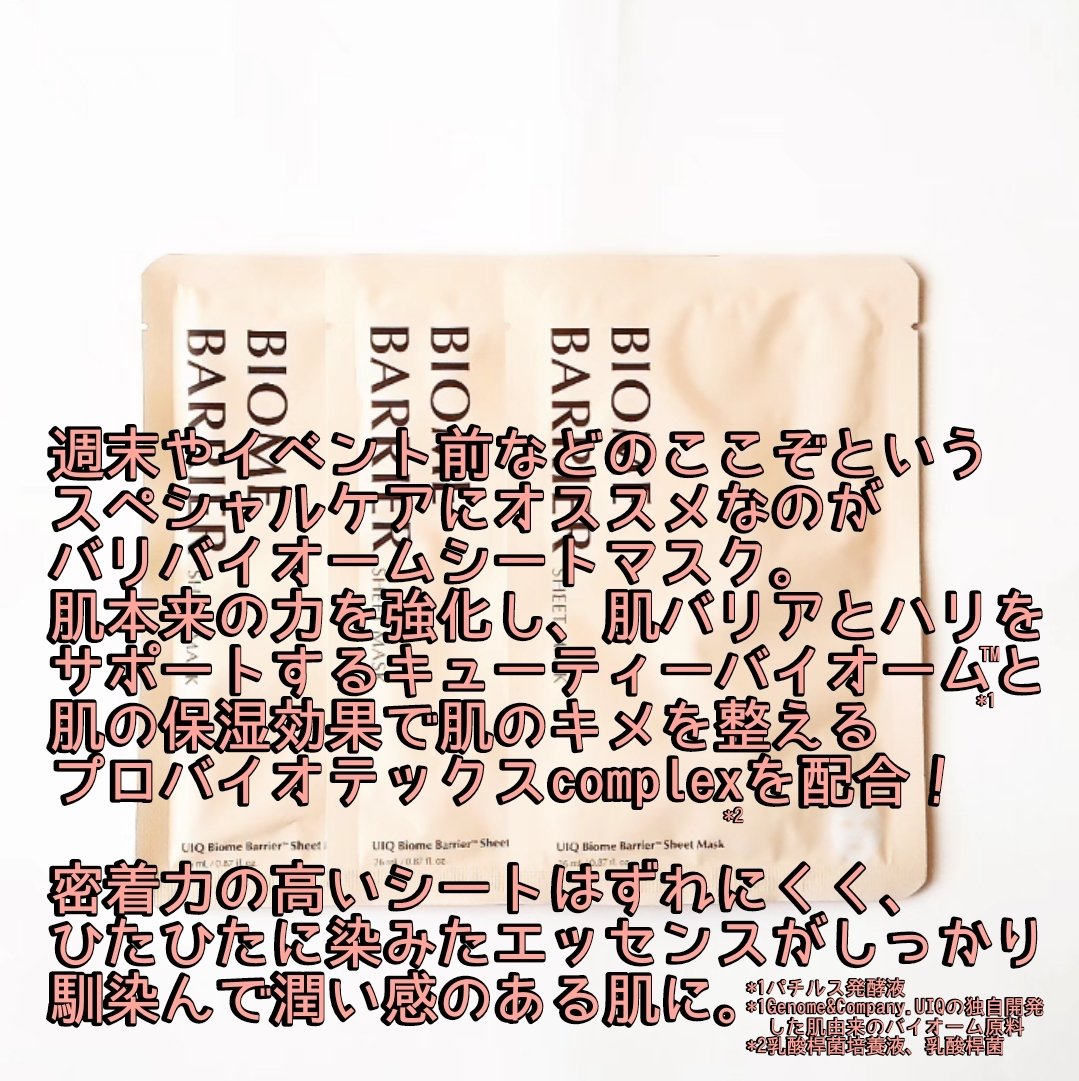 BIOME
BARRIER
BIOME
BARRIER
BIOME
BARRIER
SHEET MASK
週末やイベント前などのここぞという
スペシャルケアにオススメなのが
バリバイオームシートマスク。
肌本来の力を強化し、肌バリアとハリを
サポートするキューティーバイオーム™と
*1
肌の保湿効果で肌のキメを整える
プロバイオテックスcomplexを配合！
*2
UIQ Biome Barrier™ Sheet
UIQ Biome Barrier™ Sheet
UIQ Biome Barrier™ Sheet Mask
26 mL / 0.87 fl. oz.
26 mL / 0.87 fl. oz.
密着力の高いシートはずれにくく、
ひたひたに染みたエッセンスがしっかり
馴染んで潤い感のある肌に。
*1バチルス発酵液
*1Genome&Company.UIQの独自開発
した肌由来のバイオーム原料
*2乳酸桿菌培養液、乳酸桿菌